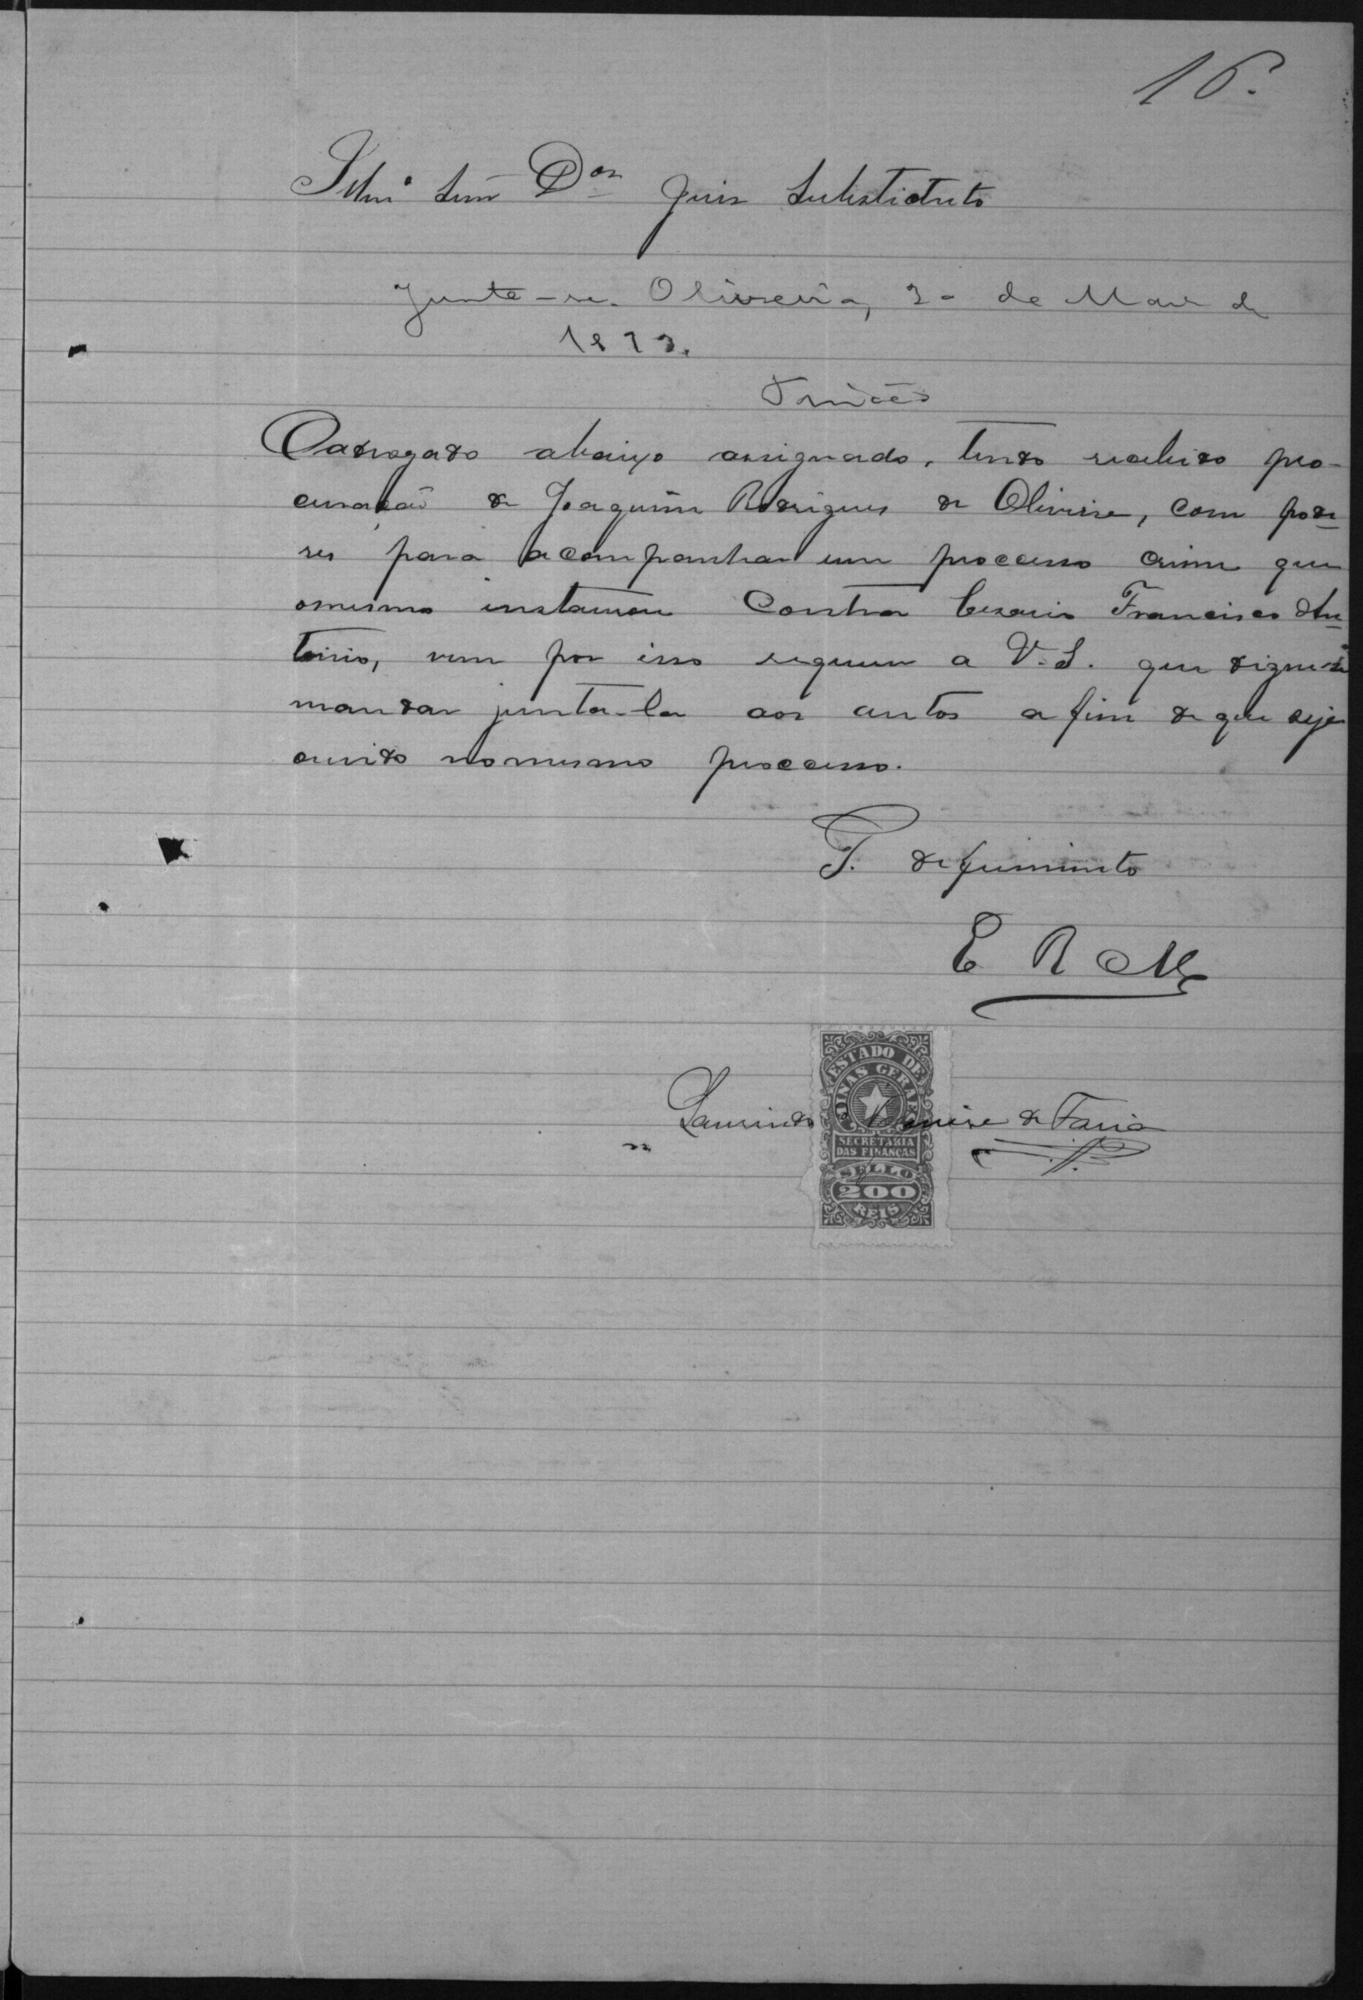 16.
Illmº Snr Dor Juiz Substituto
Junte-se. Oliveira, de de
Oadvogado abaixo assignado, tendo recebido pro-
curação de Joaquim Rodrigues de Oliveira, com pode-
res para acompanhar um processo crime que
omesmo instaurou Contra Cesario Francisco An-
tonio, vem por isso requerer a V. S. que digne-se
mandar junta-la aos autos a fim de que seja
ouvido nomesmo processo.
P. deferimento
E R M
ESTADO DE
MINAS GERAES
Laurindo de Faria
SECRETARIA
DAS FINANÇAS
SELLO
200
REIS